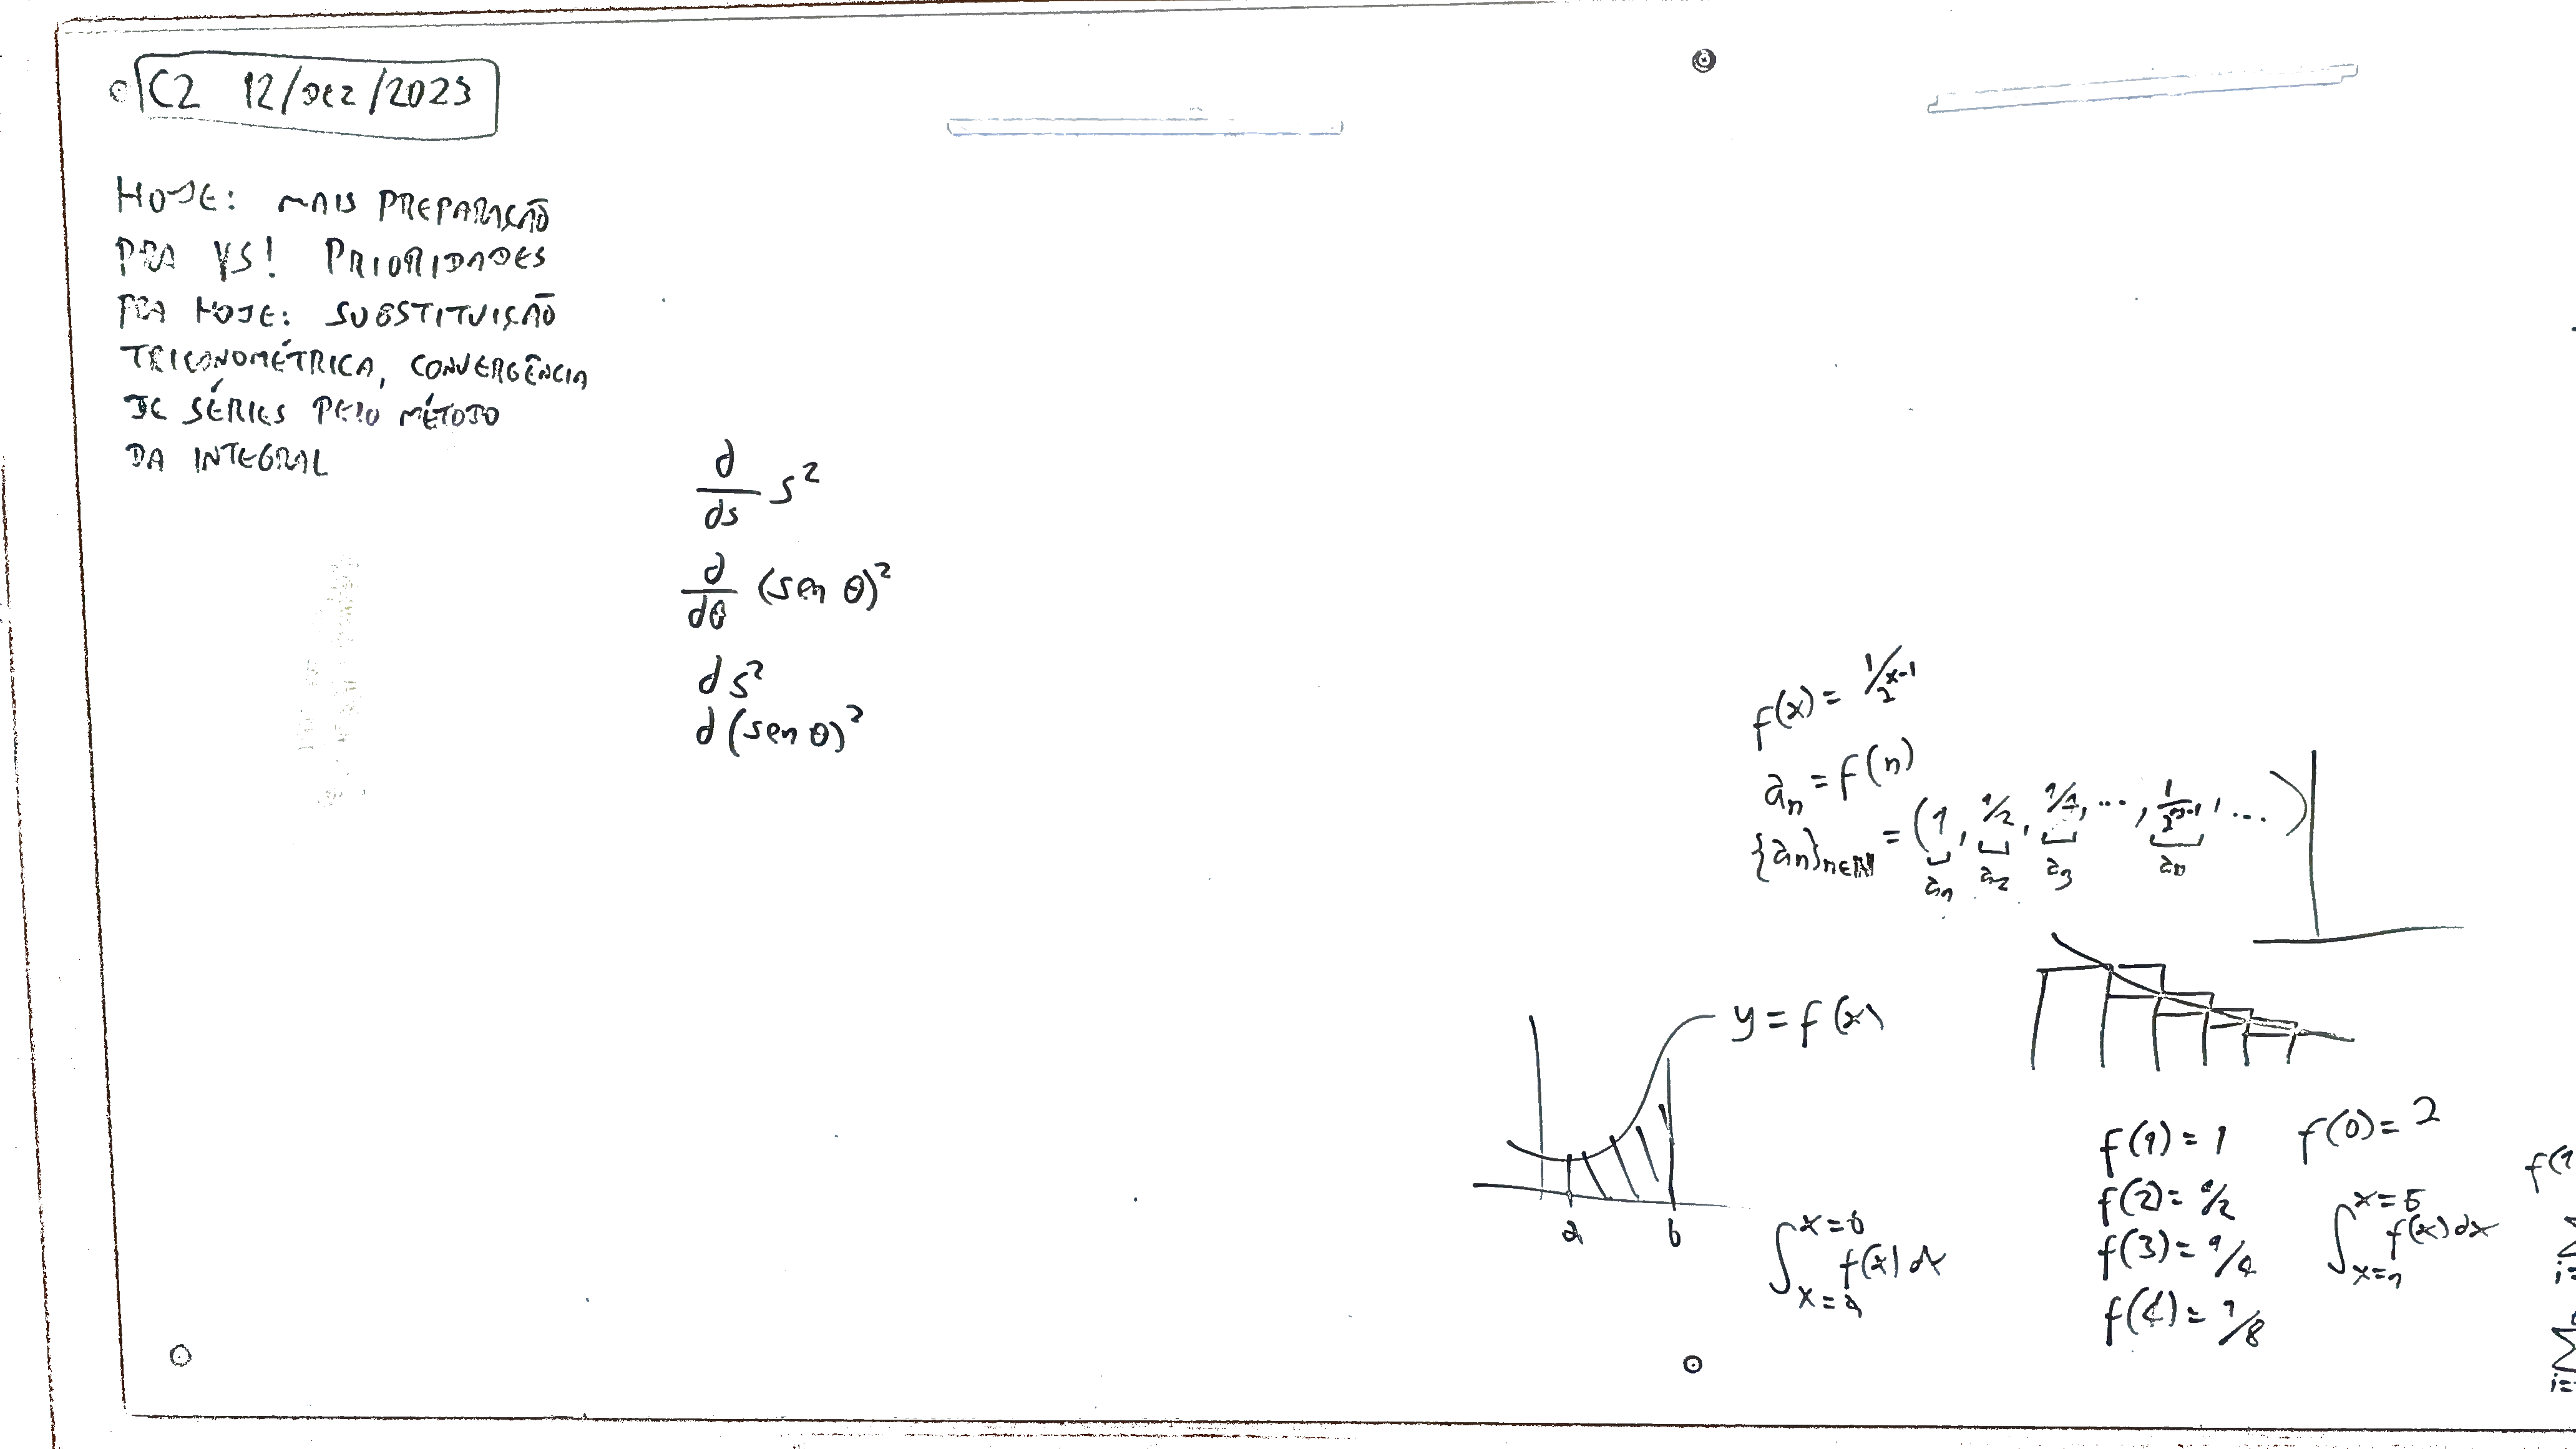 C2 12/DEZ/2023
HOJE: MAIS PREPARAÇÃO
PRA VS! PRIORIDADES
PRA HOJE: SUBSTITUIÇÃO
TRIGONOMÉTRICA, CONVERGÊNCIA
DE SÉRIES PELO MÉTODO
DA INTEGRAL
d/ds s²
d/dθ (sen θ)²
d s²
d (sen θ)²
f(x) = 1/2^(x-1)
a_n = f(n)
{a_n}_{n∈ℕ} = (1, 1/2, 1/4, ..., 1/2^(n-1), ...)
a_1 a_2 a_3 a_n
y = f(x)
a b
∫_{x=a}^{x=b} f(x) dx
f(1) = 1 f(0) = 2
f(2) = 1/2
f(3) = 1/4
f(4) = 1/8
∫_{x=1}^{x=5} f(x) dx